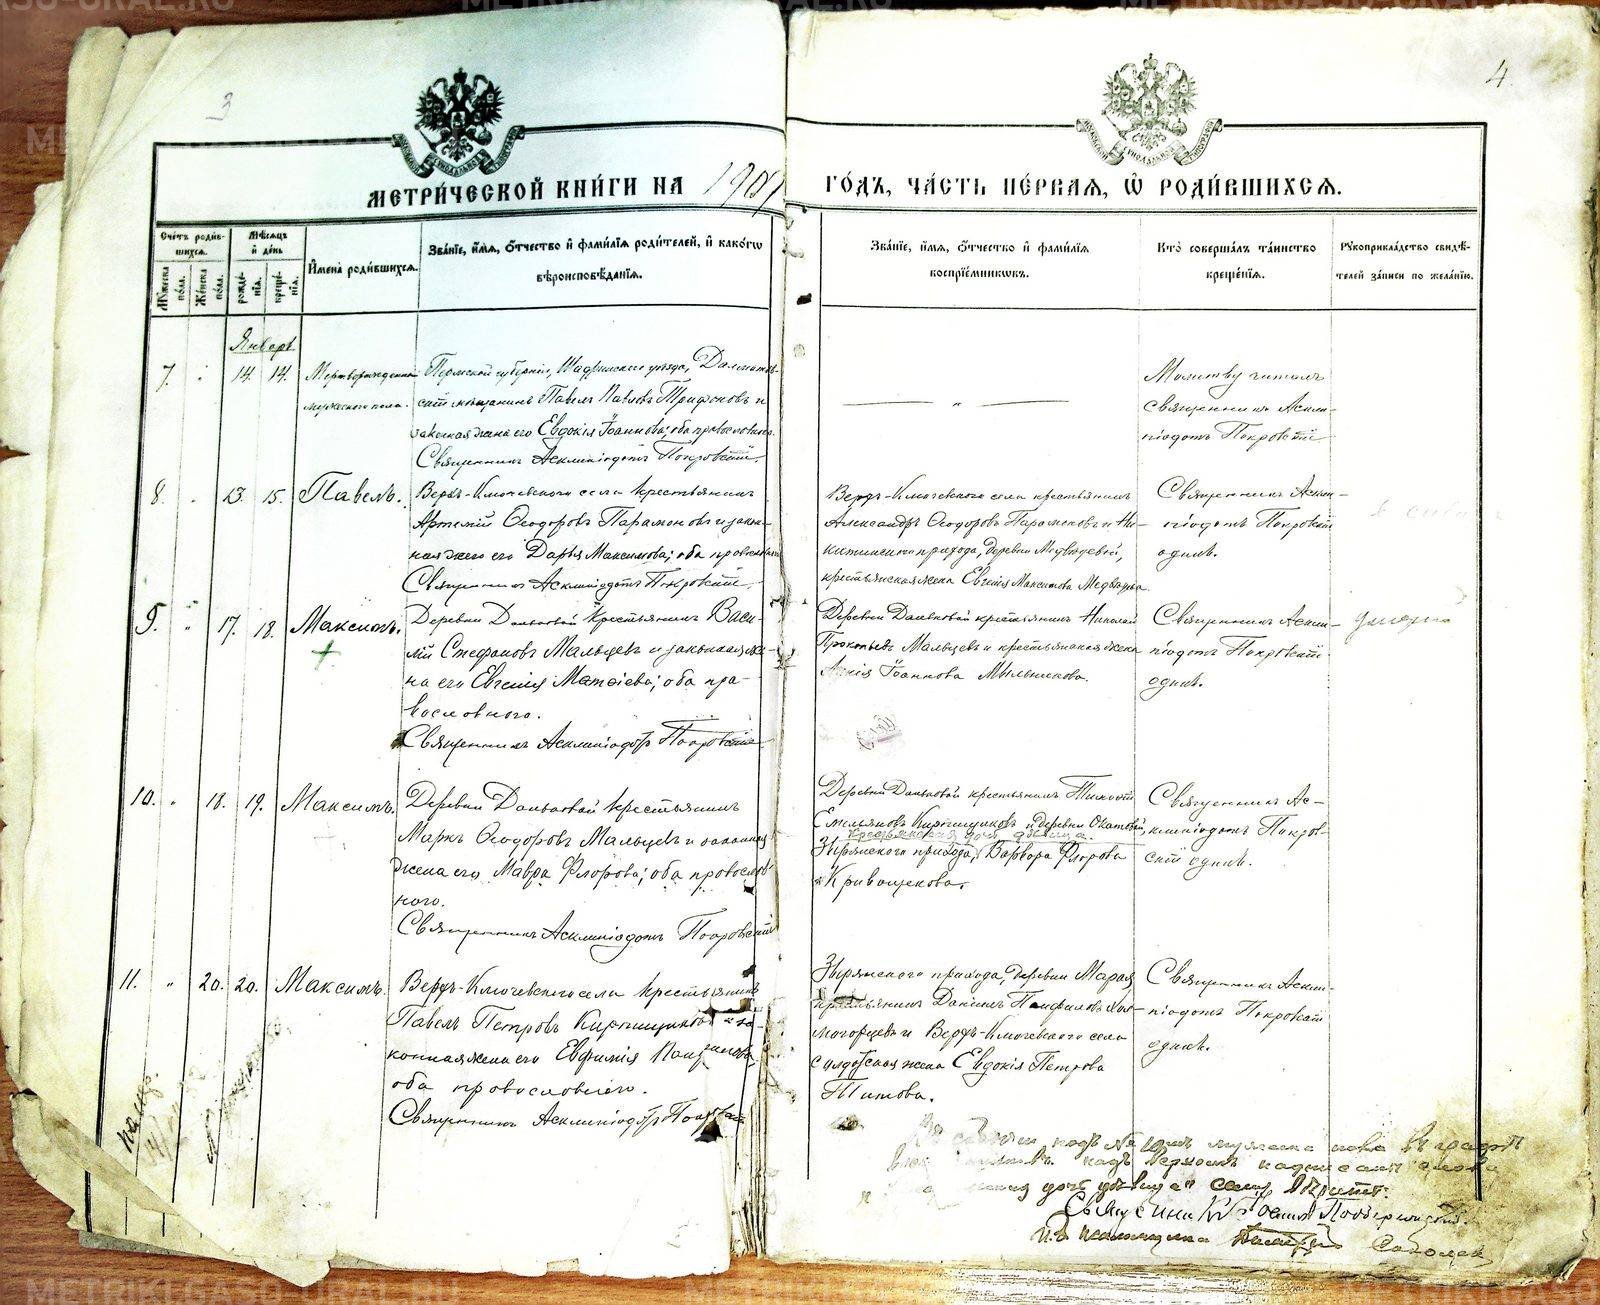 METRIKI.GASO-URAL.RU
3
4
МЕТРИ́ЧЕСКОЙ КНИ́ГИ НА 1901
ГО́ДЪ, ЧА́СТЬ ПЕ́РВАЯ, Ѽ РОДИ́ВШИХСЯ.
Сче́тъ роди́вшихся.
Му́жеска по́ла.
Же́нска по́ла.
Мѣ́сяцъ и де́нь
рожде́нїя.
креще́нїя.
Имена̀ роди́вшихся.
Зва́нїе, и́мя, ѻ́тчество и фами́лїя роди́телей, и како́гѡ
вѣроисповѣ́данїя.
Зва́нїе, и́мя, ѻ́тчество и фами́лїя
воспрїе́мниковъ.
Кто̀ соверша́лъ та́инство
креще́нїя.
Рукоприкла́дство свидѣ́-
телей за́писи по жела́нїю.
Январь
7. 14. 14. Мертворожденный
мужескаго пола.
Пермской губерніи, Шадринскаго уѣзда, Далматов-
скій мѣщанинъ Павелъ Павловъ Трифоновъ и
законная жена его Евдокія Іоаннова; оба православнаго.
Священникъ Асклипіодотъ Покровскій.
Молитву читалъ
священникъ Аскли-
піодотъ Покровскій
8. 13. 15. Павелъ.
Верхъ-Ключевского села крестьянинъ
Артемій Ѳеодоровъ Парамоновъ и закон-
ная жена его Дарья Максимова; оба православнаго
Священникъ Асклипіодотъ Покровскій.
Верхъ-Ключевского села крестьянинъ
Александръ Ѳеодоровъ Парамоновъ и Ни-
китинскаго прихода, деревни Медвѣдевой,
крестьянская жена Евгенія Максимова Медвѣдева.
Священникъ Аскли-
піодотъ Покровскій
одинъ.
9. 17. 18. Максимъ.
Деревни Даньковой крестьянинъ Васи-
лій Стефановъ Мальцевъ и законная же-
на его Евгенія Матѳіева; оба пра-
вославнаго.
Священникъ Асклипіодотъ Покровскій
Деревни Даньковой крестьянинъ Николай
Прокопьевъ Мальцевъ и крестьянская жена
Іоаннова Мыльникова.
Священникъ Аскли-
піодотъ Покровскій
одинъ.
10. 18. 19. Максимъ.
Деревни Даньковой крестьянинъ
Маркъ Ѳеодоровъ Мальцевъ и законная
жена его Мавра Флорова; оба православ-
наго.
Священникъ Асклипіодотъ Покровскій
Деревни Даньковой крестьянинъ
Емельяновъ Кирпищиковъ и деревни Окатовой,
крестьянская дочь дѣвица
Зырянского прихода, Варвара Флорова
Кривощекова.
Священникъ Ас-
клипіодотъ Покров-
скій одинъ.
11. 20. 20. Максимъ.
Верхъ-Ключевского села крестьянинъ
Павелъ Петровъ Кирпищиковъ и за-
конная жена его Евфимія
оба православнаго.
Священникъ Асклипіодотъ Покровскій
Зырянского прихода, деревни Марай,
крестьянинъ Даніилъ Панфиловъ Хол-
могорцевъ и Верхъ-Ключевского села
солдатская жена Евдокія Петрова
Титова.
Священникъ Аскли-
піодотъ Покровскій
одинъ.
подъ № 10 мъ мужеска пола въ графѣ
надъ верхомъ надписаны слова
дочь дѣвица"
METRIKI.GASO-URAL.RU